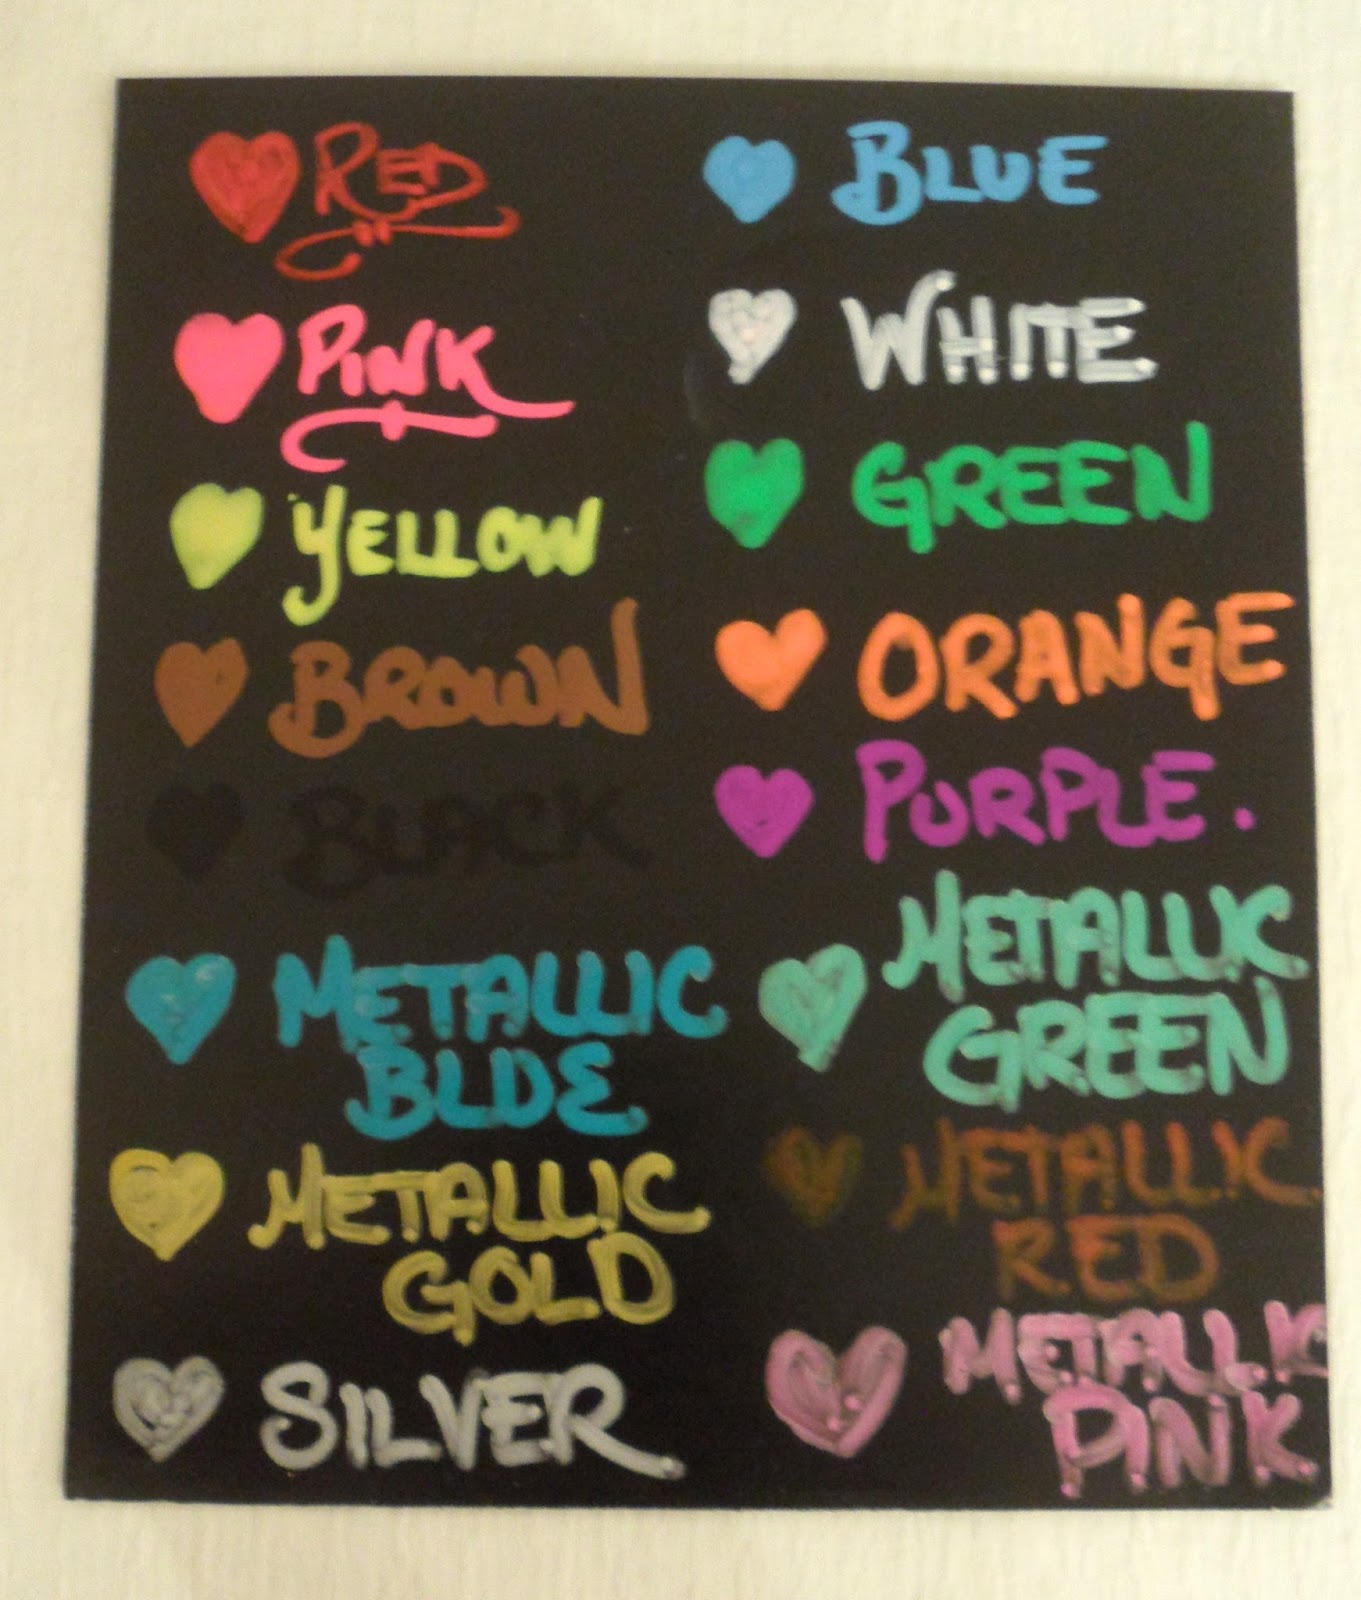 RED
PINK
YELLOW
BROWN
BLACK
METALLIC
BLUE
METALLIC
GOLD
SILVER
BLUE
WHITE
GREEN
ORANGE
PURPLE.
METALLIC
GREEN
METALLIC
RED
METALLIC
PINK